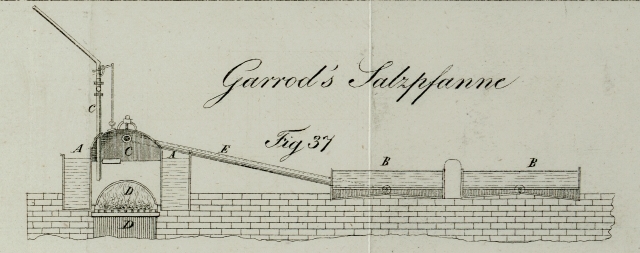 Garrod's Salzpfanne
Fig 37
C
A C A E B B
D
D